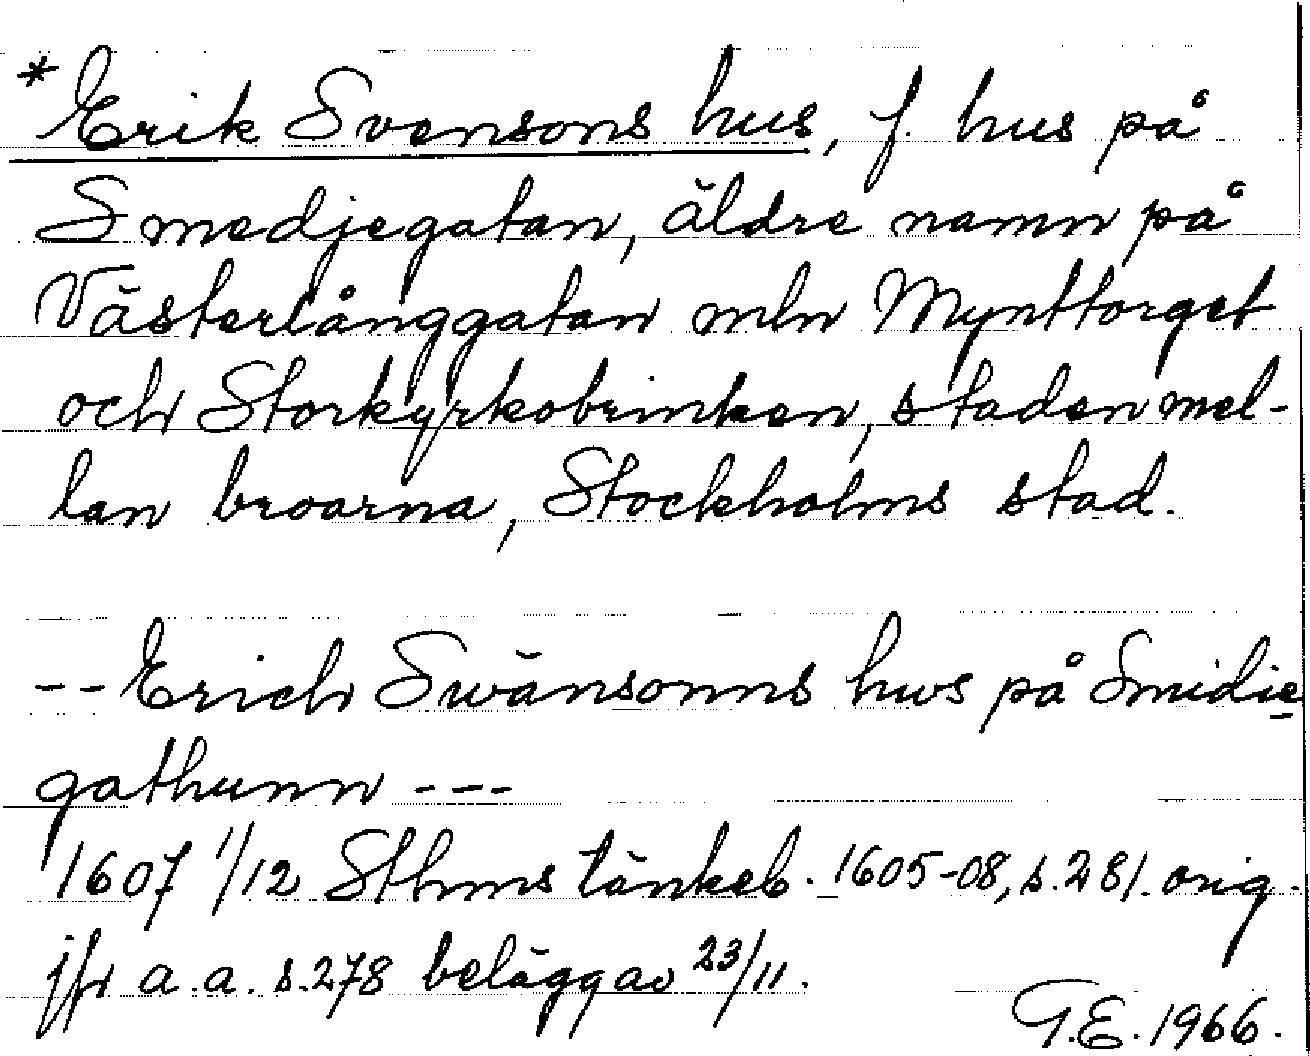 * Erik Svensons hus, f. hus på
Smedjegatan, äldre namn på
Västerlånggatan mln Mynttorget
och Storkyrkobrinken, staden mel-
lan broarna, Stockholms stad.
-- Erich Swänsonns hws på Smidie
gathunn ---
1607 1/12 Sthms tänkeb. 1605-08, s. 281. orig.
jfr a.a. s. 278 belägg av 23/11.
G.E. 1966.